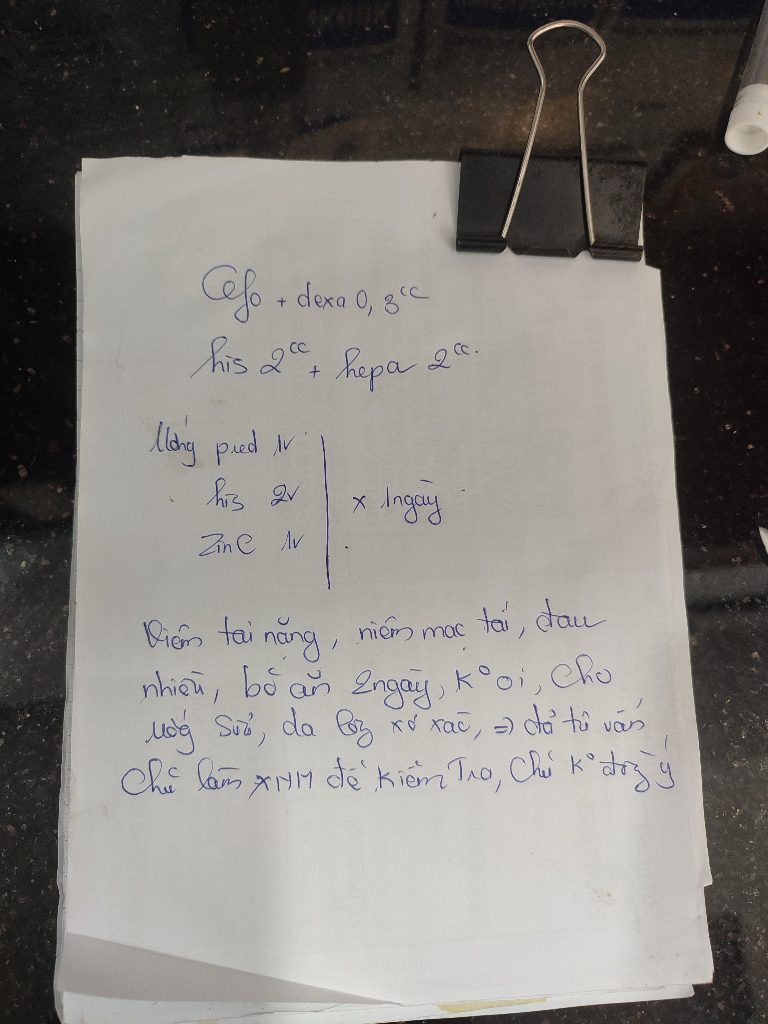 Cefo + dexa 0,3cc
his 2cc + hepa 2cc.
Uống pred 1v
his 2v x 1ngày
ZinC 1v
Viêm tai nặng, niêm mạc tái, đau
nhiều, bỏ ăn 2ngày, K° ói, Cho
uống sữa, da lôg xơ xác, => đã tư vấn
Chủ làm XNM để Kiểm Tra, Chủ K° đồg ý